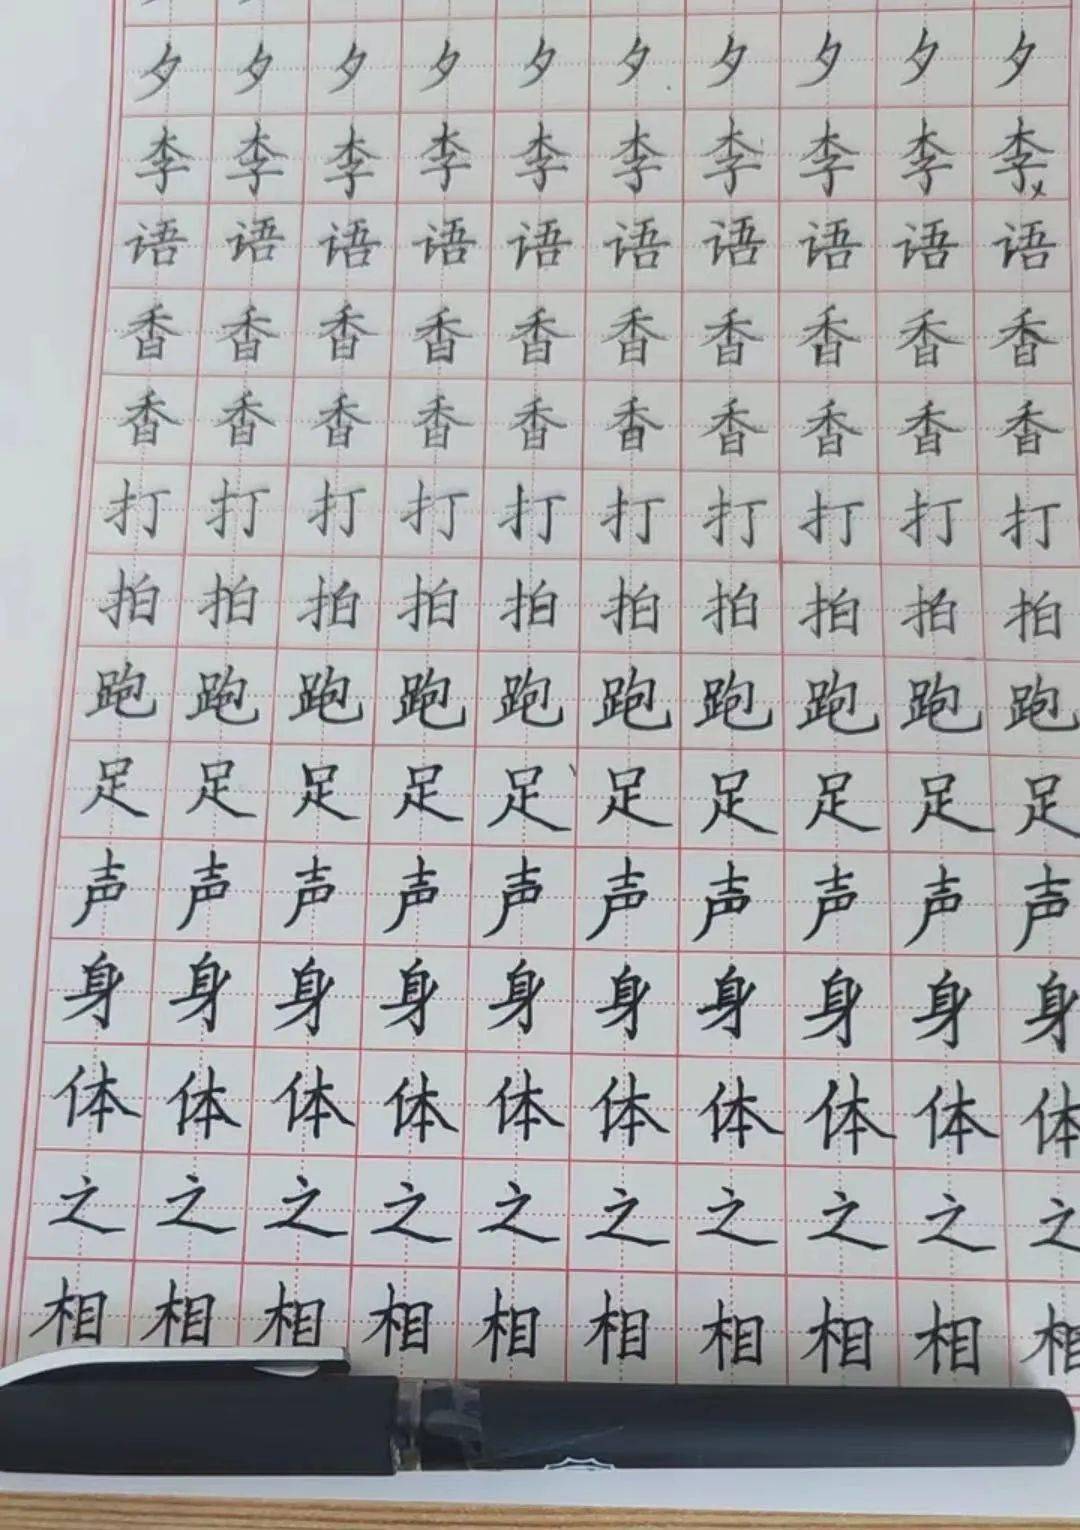 夕夕夕夕夕夕夕夕夕夕
李李李李李李李李李李
语语语语语语语语语语
香香香香香香香香香香
香香香香香香香香香香
打打打打打打打打打打
拍拍拍拍拍拍拍拍拍拍
跑跑跑跑跑跑跑跑跑跑
足足足足足足足足足足
声声声声声声声声声声
身身身身身身身身身身
体体体体体体体体体体
之之之之之之之之之之
相相相相相相相相相相